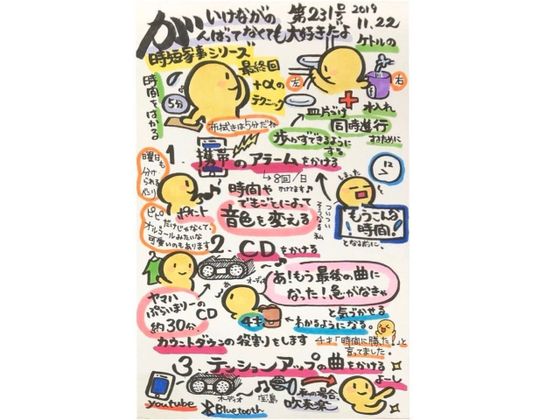 いけながの
がんばってなくても大好きだよ
第231号
2019
11.22
時短家事シリーズ
最終回
+αの
テクニック
ケトルの
左
右
時間をはかる
5分
布拭きは5分だね
皿片づけ
+
水入れ
同時進行
するために
歩かずできるように
する
1.
携帯のアラームをかける
→8回/日
かけてます♪
曜日も
分け
られる
時間や
できごとによって
音色を変える
ピピピ
だけじゃなくて、
オルゴールみたいな
可愛いのもあります
しまった
ついつい
もうこんな
時間!
となるポイント
2. CDをかける
オーディオ
あ!もう最後の曲に
なった!急がなきゃ
と気づかせる
わかるようになる。
ヤマハ
ぷらいまりーの
CD
約30分
4才
カウントダウンの役割をします
4才「時間に勝った!」と
言ってました。
3. テンションアップの曲をかける
youtube
オーディオ
Bluetooth
私の場合、
吹奏楽
よーし